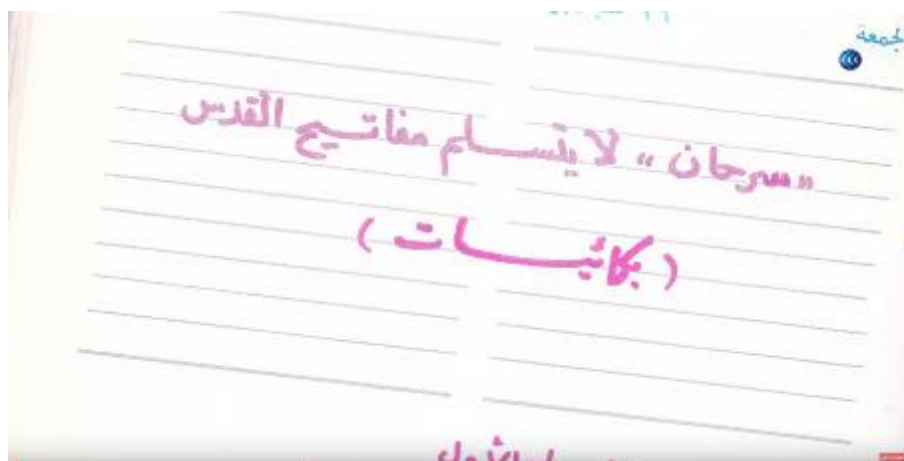 الجمعة
"سرحان" لا يتسلم مفاتيح القدس
( بكائيات )